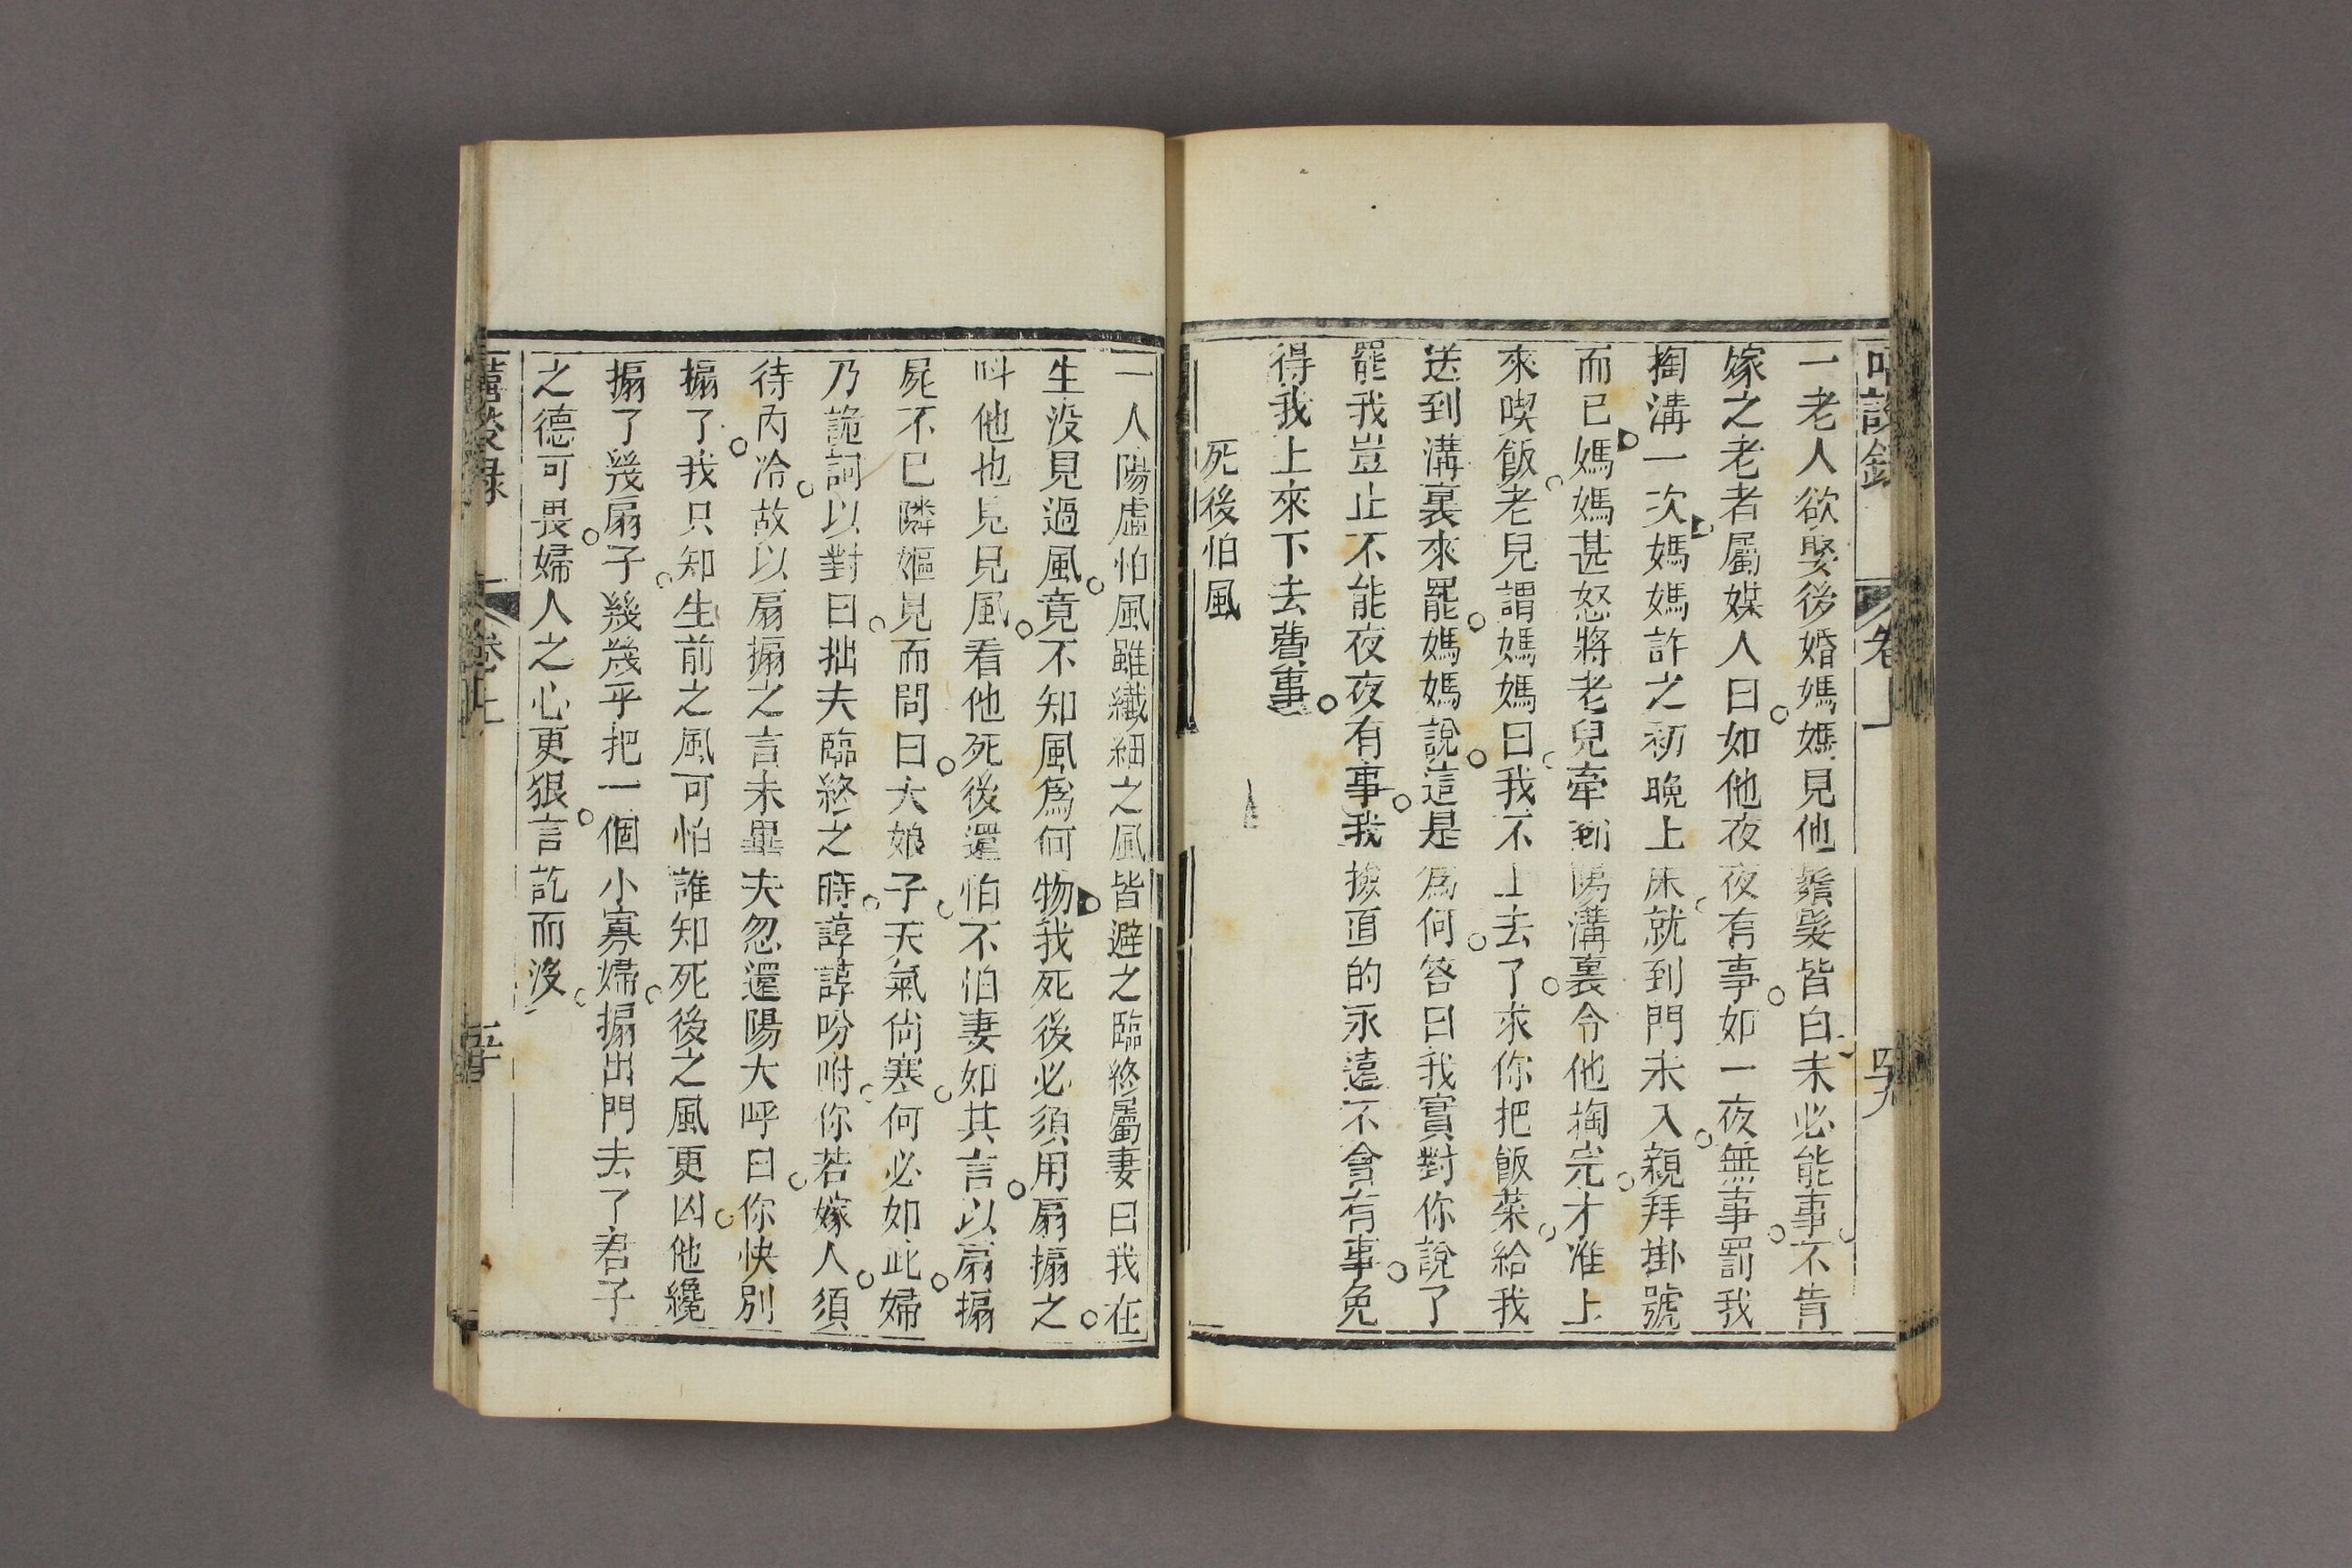 一老人欲娶後婚媽媽見他鬢髮皆白未必能事不肯
嫁之老者屬媒人曰如他夜夜有事如一夜無事罰我
掏溝一次媽媽許之初晚上床就到門未入親拜掛號
而已媽媽甚怒將老兒牽到陽溝裏令他掏完才准上
來喫飯老兒謂媽媽曰我不上去了求你把飯菜給我
送到溝裏來罷媽媽說這是為何答曰我實對你說了
罷我豈止不能夜夜有事我撿直的永遠不會有事免
得我上來下去費事
死後怕風
卷上
四九
一人陽虛怕風雖纖細之風皆避之臨終屬妻曰我在
生沒見過風竟不知風為何物我死後必須用扇搧之
呌他也見見風看他死後還怕不怕妻如其言以扇搧
屍不已隣嫗見而問曰大娘子天氣尚寒何必如此婦
乃詭詞以對曰拙夫臨終之時諄諄吩咐你若嫁人須
待丙冷故以扇搧之言未畢夫忽還陽大呼曰你快別
搧了我只知生前之風可怕誰知死後之風更凶他纔
搧了幾扇子幾幾乎把一個小寡婦搧出門去了君子
之德可畏婦人之心更狠言訖而沒
談録
卷上
五十